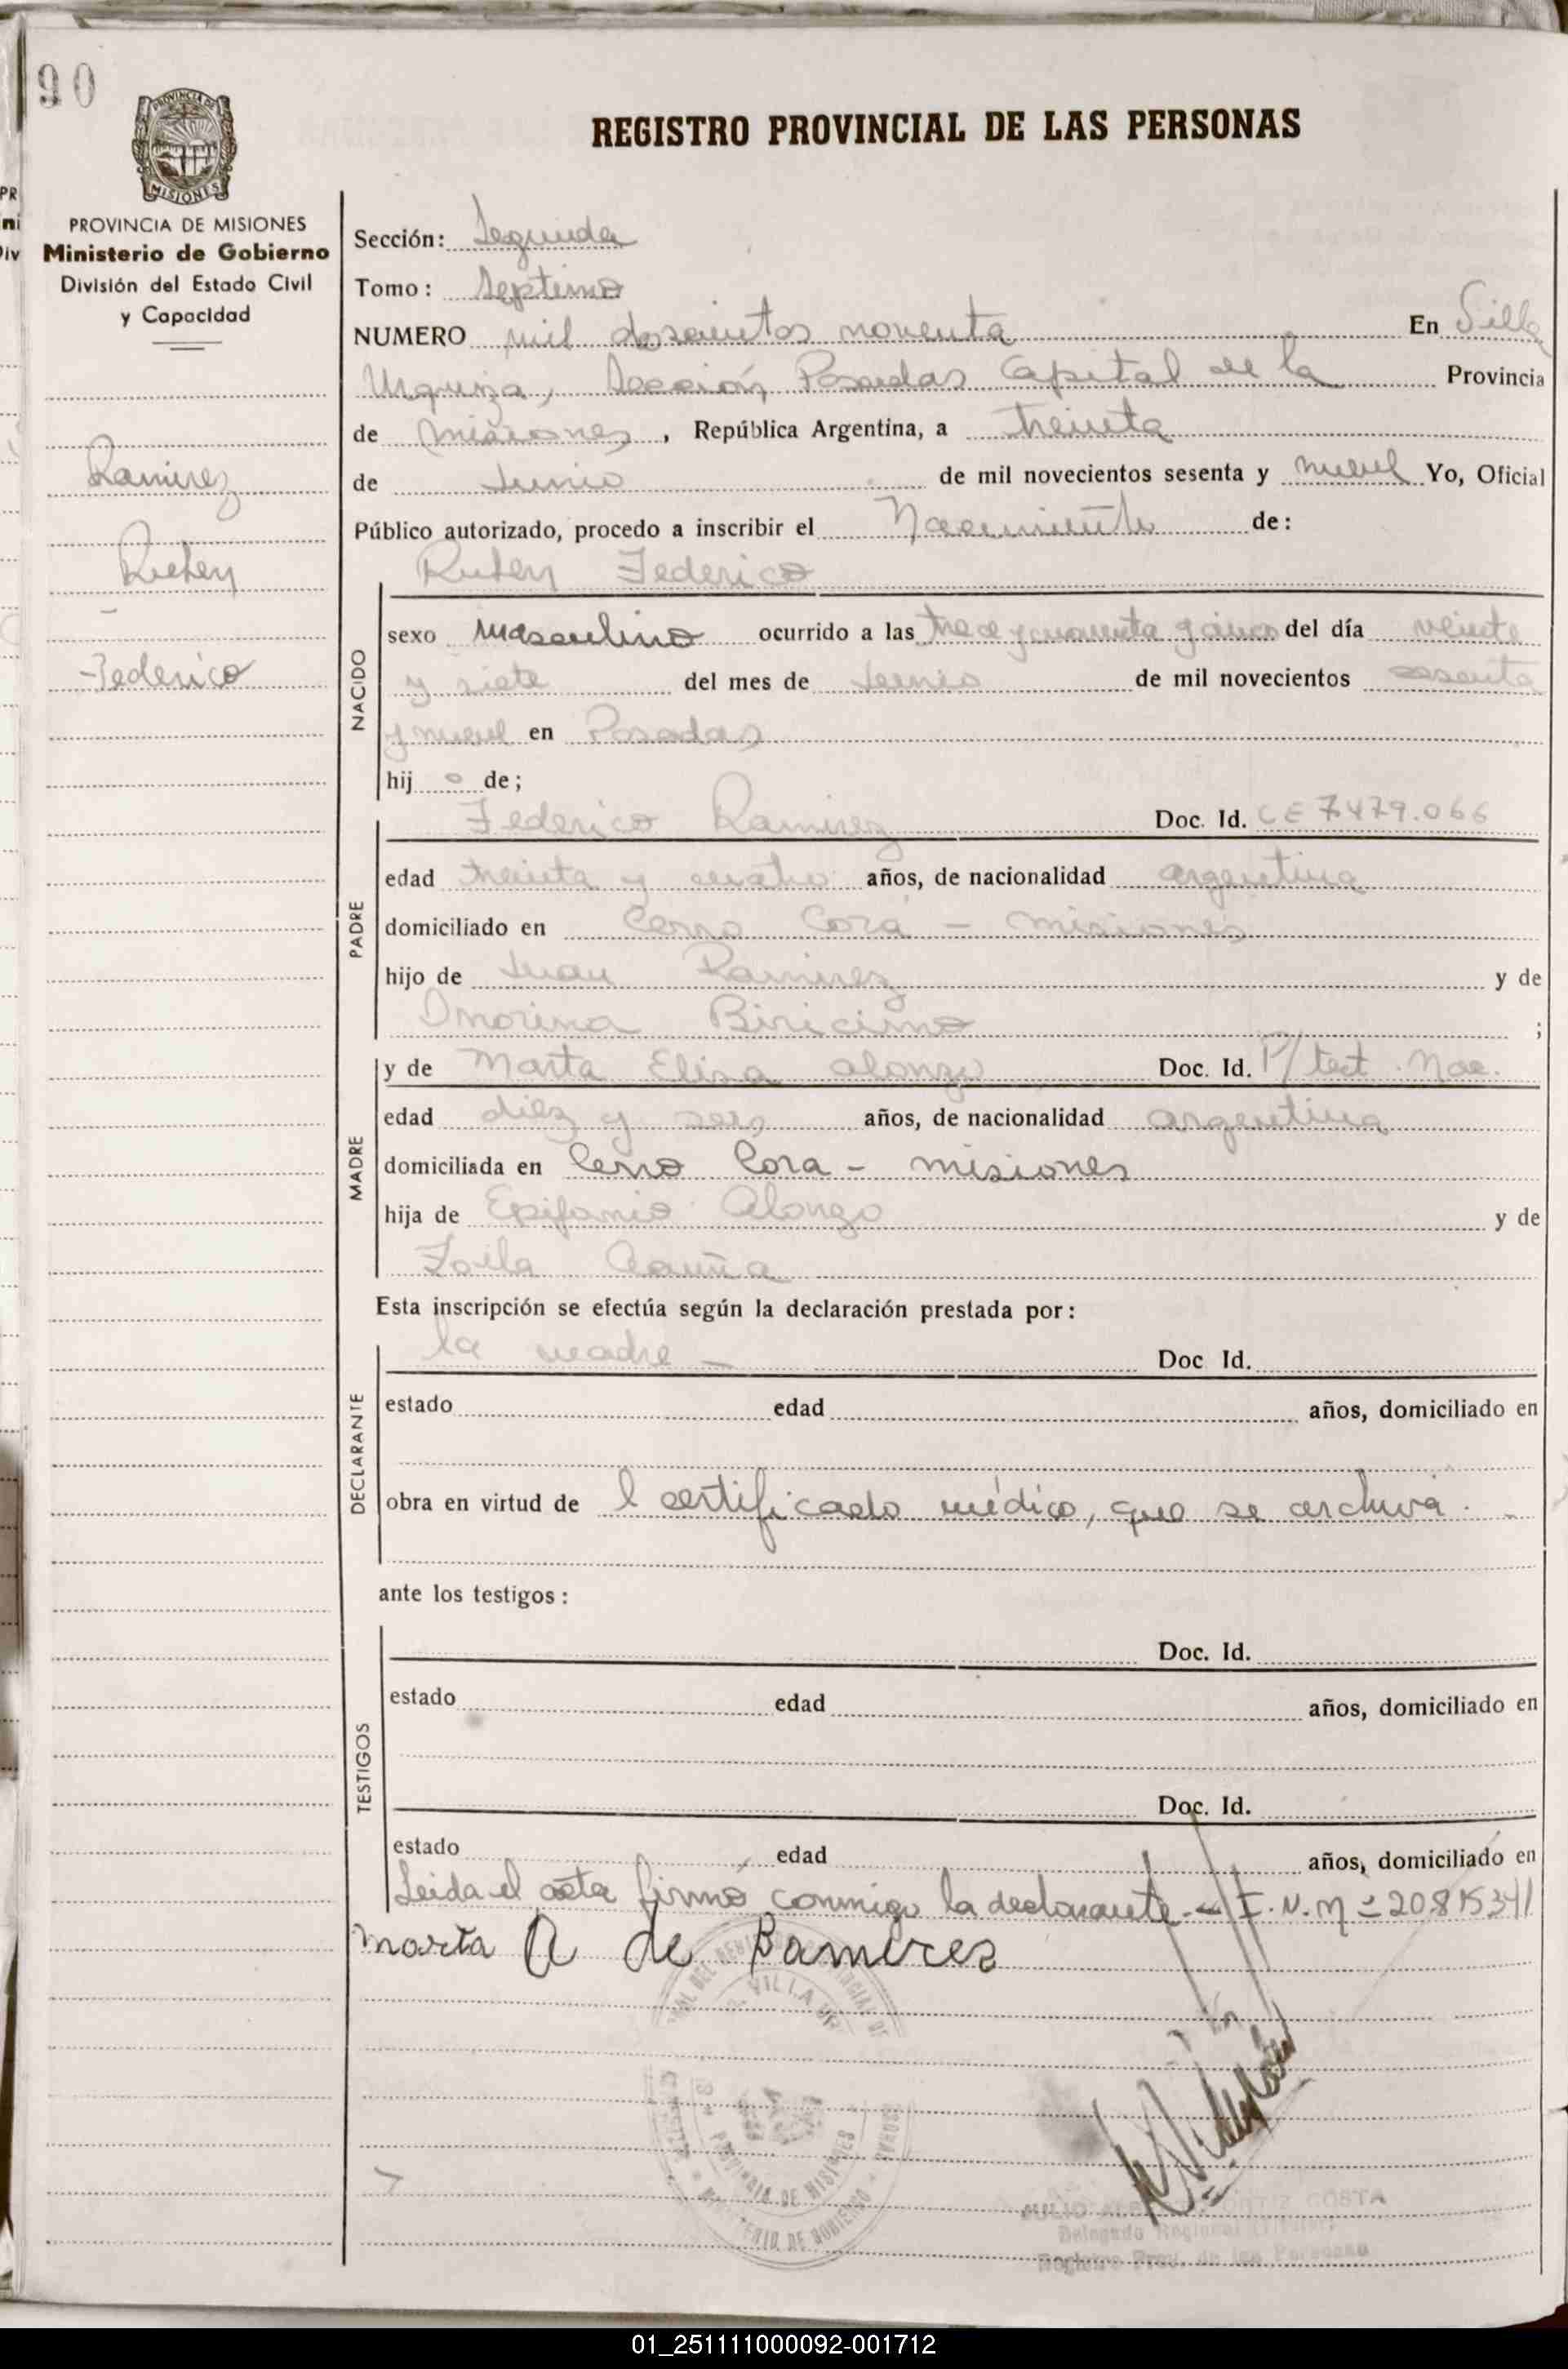 90
PROVINCIA DE
MISIONES
PROVINCIA DE MISIONES
Ministerio de Gobierno
División del Estado Civil
y Capacidad
Ramirez
Ruben
Federico
REGISTRO PROVINCIAL DE LAS PERSONAS
Sección: Segunda
Tomo: Septimo
NUMERO mil doscientos noventa En Villa
Urquiza, Sección Posadas Capital de la Provincia
de Misiones, República Argentina, a treinta
de Junio de mil novecientos sesenta y nueve Yo, Oficial
Público autorizado, procedo a inscribir el Nacimiento de:
Ruben Federico
NACIDO
sexo Masculino ocurrido a las trece y cuarenta y cinco del día veinte
y siete del mes de Junio de mil novecientos sesenta
y nueve en Posadas
hij o de;
PADRE
Federico Ramirez Doc. Id. CE 7479.066
edad treinta y cuatro años, de nacionalidad argentina
domiciliado en Cerro Corá - Misiones
hijo de Juan Ramirez y de
;
MADRE
y de Marta Elisa Alonzo Doc. Id. P/ test. Nac.
edad diez y seis años, de nacionalidad argentina
domiciliada en Cerro Cora - Misiones
hija de Epifanio Alonzo y de
Zoila Acuña
Esta inscripción se efectúa según la declaración prestada por:
DECLARANTE
la madre - Doc Id.
estado edad años, domiciliado en
obra en virtud de l certificado médico, que se archiva.
ante los testigos:
TESTIGOS
Doc. Id.
estado edad años, domiciliado en
Doc. Id.
estado edad años, domiciliado en
Leida el acta firmó conmigo la declarante.- I.N.M = 20815341
Marta A de Ramires
VILLA UR
PROVINCIA DE MISIONES
MINISTERIO DE GOBIERNO
JULIO ALBERTO ORTIZ COSTA
Delegado Regional
Registro Prov. de las Personas
01_251111000092-001712